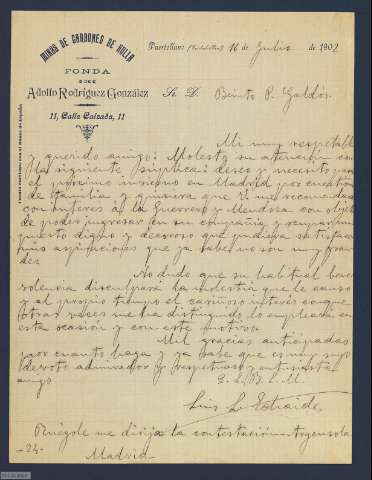 MINAS DE CARBONES DE HULLA
FONDA
DE
Adolfo Rodríguez González
11, Calle Calzada, 11
Puertollano (Ciudad Real) 16 de Julio de 1902
Sr. D. Benito P. Galdós
Mi muy respetable
y querido amigo: Molesto su atención con
la siguiente súplica: deseo y necesito para
el próximo invierno en Madrid por cuestión
de familia y quisiera que V. me recomendase
con interés a la Guerrero y Mendoza con objeto
de poder ingresar en su compañía y ocupar un
puesto digno y decoroso que pudiera satisfacer
mis aspiraciones que ya sabe no son muy gran
des.
No dudo que su habitual bene
volencia disculpará la molestia que le causo
y al propio tiempo el cariñoso interés con que
otras veces me ha distinguido lo empleará en
esta ocasión y con este motivo.
Mil gracias anticipadas
por cuanto haga y ya sabe que es muy suyo
devoto admirador y respetuoso y entusiasta
amigo
Q. L. B. L. M.
Luis
Ruégole me dirija la contestación Argensola
-24-
Madrid